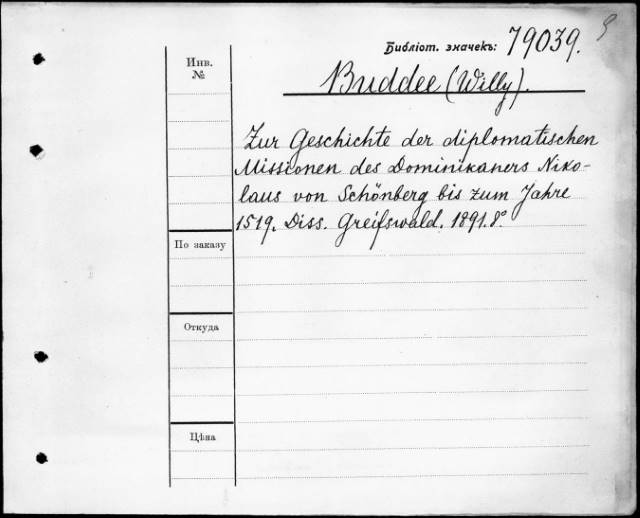 Библіот. значекъ: 79039.
Инв.
№
Buddee (Willy).
Zur Geschichte der diplomatischen
Missionen des Dominikaners Niko-
laus von Schönberg bis zum Jahre
1519. Diss. Greifswald. 1891. 8°
По заказу
Откуда
Цѣна